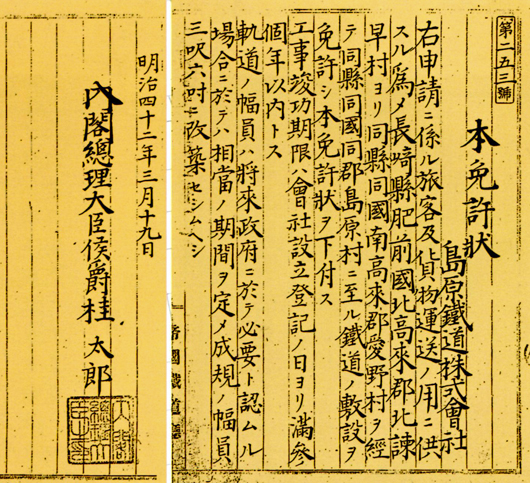 第二五三號
本免許狀
島原鐵道株式會社
右申請ニ係ル旅客及貨物運送ノ用ニ供
スル爲メ長崎縣肥前國北高來郡北諫
早村ヨリ同縣同國南高來郡愛野村ヲ經
テ同縣同國同郡島原村ニ至ル鐵道ノ敷設ヲ
免許シ本免許狀ヲ下付ス
工事竣功期限ハ會社設立登記ノ日ヨリ滿參
個年以内トス
軌道ノ幅員ハ將來政府ニ於テ必要ト認ムル
場合ニ於テハ相當ノ期間ヲ定メ成規ノ幅員
三呎六吋ニ改築セシムヘシ
帝國鐵道廳
明治四十二年三月十九日
內閣總理大臣侯爵桂 太郎